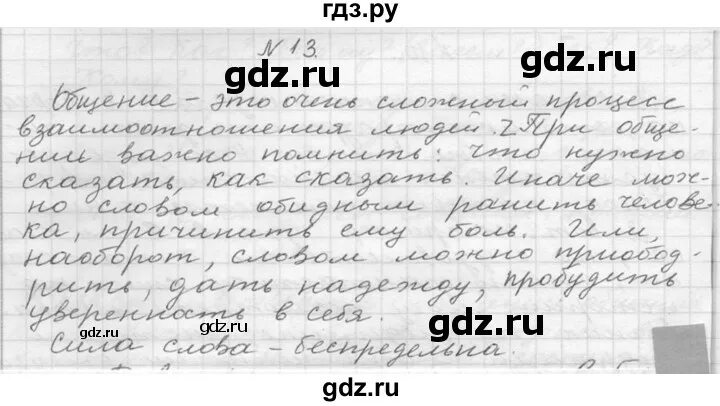 гдз.ру
N 13.
gdz.ru gdz.ru
Общение – это очень сложный процесс
взаимоотношения людей. Z При обще-
нии важно помнить: что нужно
сказать, как сказать. Иначе мож-
но словом обидным ранить челове-
ка, причинить ему боль. Или,
наоборот, словом можно приобод-
рить, дать надежду, пробудить
уверенность в себя.
gdz.ru gdz.ru gdz.ru
Сила слова – беспредельна.
gdz.ru